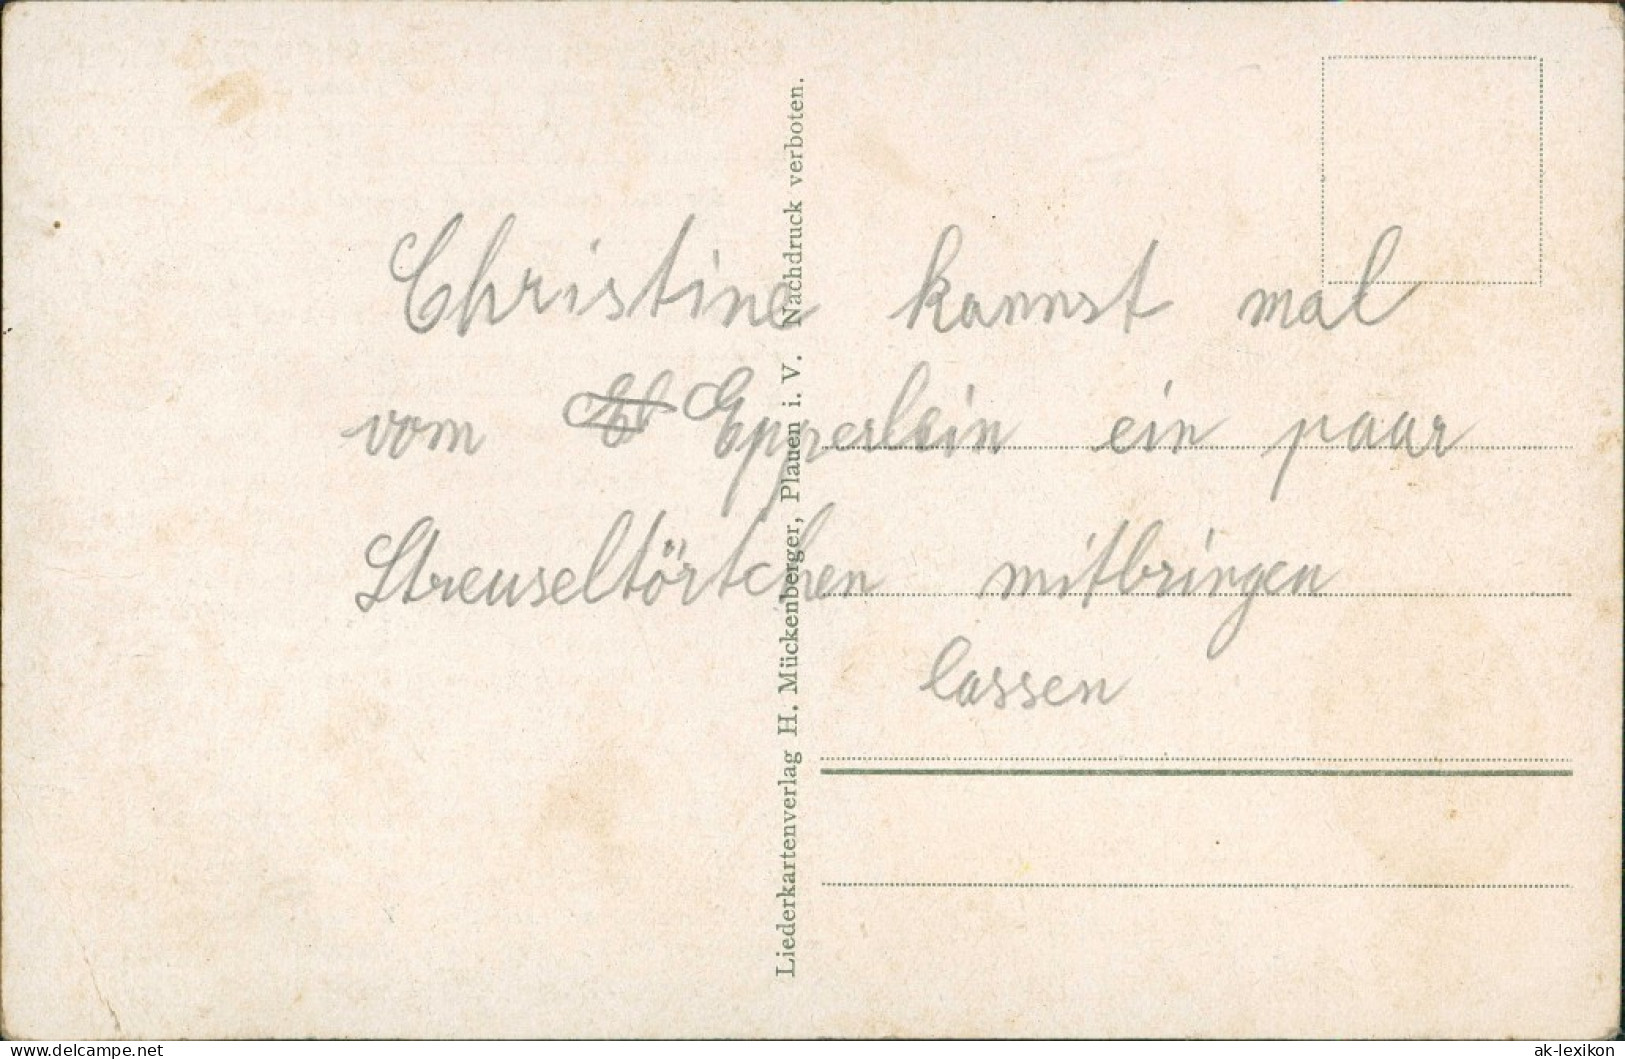 Christine kannst mal
vom Epperlein ein paar
Streuseltörtchen mitbringen
lassen
Liederkartenverlag H. Mückenberger, Plauen i. V. Nachdruck verboten.
delcampe.net
ak-lexikon